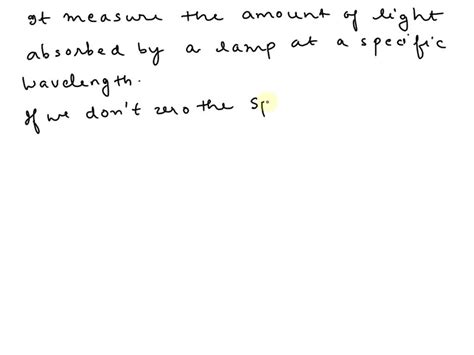 It measure the amount of light
absorbed by a lamp at a specific
wavelength.
If we don't zero the Sp